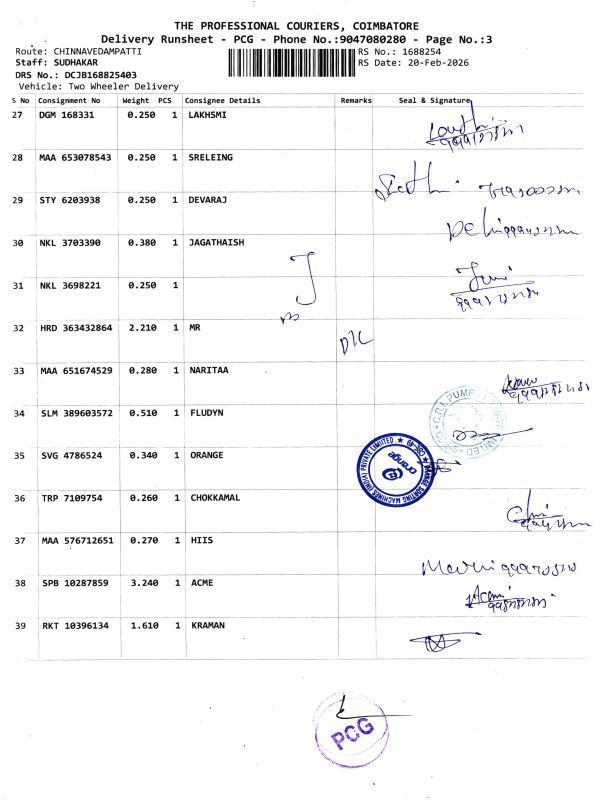 THE PROFESSIONAL COURIERS, COIMBATORE
Delivery Runsheet - PCG - Phone No.:9047080280 - Page No.:3
Route: CHINNAVEDAMPATTI RS No.: 1688254
Staff: SUDHAKAR RS Date: 20-Feb-2026
DRS No.: DCJB168825403
Vehicle: Two Wheeler Delivery
S No Consignment No Weight PCS Consignee Details Remarks Seal & Signature
27 DGM 168331 0.250 1 LAKHSMI
28 MAA 653078543 0.250 1 SRELEING
29 STY 6203938 0.250 1 DEVARAJ
30 NKL 3703390 0.380 1 JAGATHAISH
J
31 NKL 3698221 0.250 1
32 HRD 363432864 2.210 1 MR
33 MAA 651674529 0.280 1 NARITAA
34 SLM 389603572 0.510 1 FLUDYN
35 SVG 4786524 0.340 1 ORANGE
orange
ORANGE SORTING MACHINES (INDIA) PRIVATE LIMITED
36 TRP 7109754 0.260 1 CHOKKAMAL
37 MAA 576712651 0.270 1 HIIS
38 SPB 10287859 3.240 1 ACME
39 RKT 10396134 1.610 1 KRAMAN
PCG